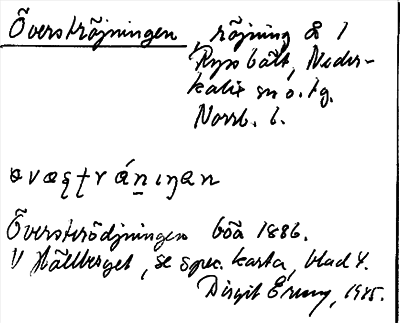 Överströjningen, röjning å 1
Rysbält, Neder-
kalix sn o. tg.
Norrb. l.
Överströdjningen böä 1886.
V Hällberget, se spec. karta, blad 4.
Birgit 1985.